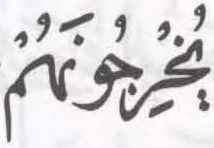 يُخْرِجُونَهُمْ